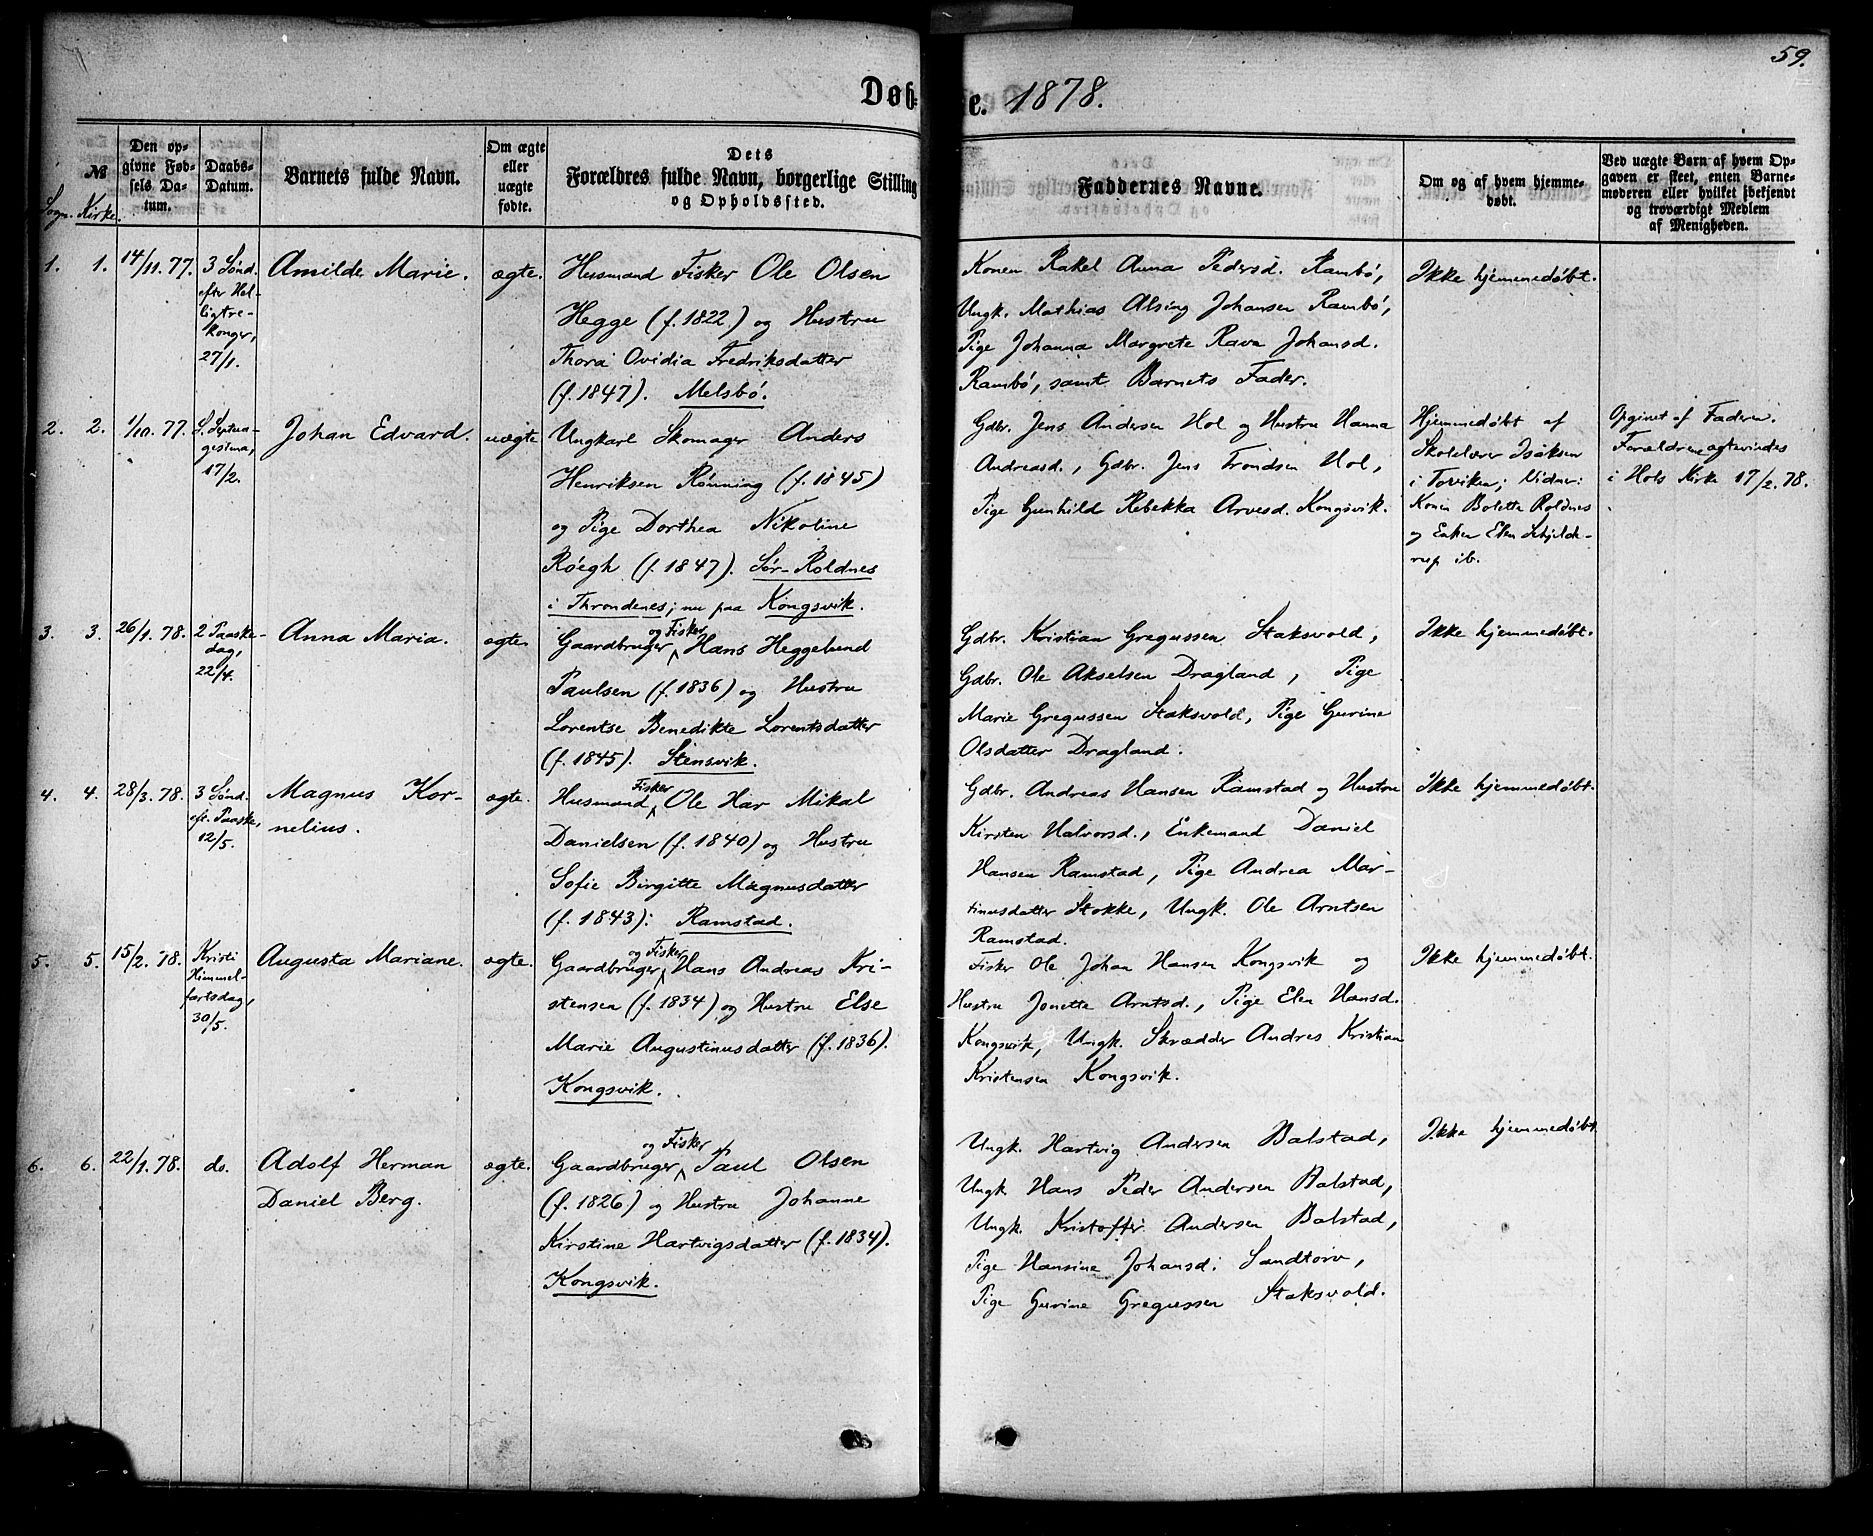 59.
Døb-
e. 1878.
№
Sogn. Kirke.
Den op-
givne Fød-
sels Da-
tum.
Daabs-
Datum.
Barnets fulde Navn.
Om ægte
eller
uægte
fødte.
Dets
Forældres fulde Navn, borgerlige Stilling
og Opholdssted.
Faddernes Navne.
Om og af hvem hjemme-
døbt.
Ved uægte Børn af hvem Op-
gaven er skeet, enten Barne-
moderen eller hvilket bekjendt
og troværdigt Medlem
af Menigheden.
1. 1. 14/11. 77.
3 Sønd.
efter Hel-
ligtre-
konger,
27/1.
Amilde Marie.
ægte.
Husmand Fisker Ole Olsen
Hegge (f. 1822.) og Hustru
Thora Ovidia Fredriksdatter
(f. 1847). Melsbö.
Konen Rakel Anna Pedersd. Rambö,
Ungk. Mathias Alsing Johansen Rambö,
Pige Johanna Margrete Rava Johansd.
Rambö, samt Barnets Fader.
Ikke hjemmedøbt.
2. 2. 1/10. 77.
S. Septua-
gesima,
17/2.
Johan Edvard.
uægte
Ungkarl Skomager Anders
Henriksen Rönning (f. 1845)
og Pige Dorthea Nikoline
Röegh (f. 1847). Sør-Roldnes
i Throndenes; nu paa Kongsvik.
Gdbr. Jens Andersen Hol og Hustru Hanna
Andreasd., Gdbr. Jens Trondsen Hol,
Pige Gunhild Rebekka Arvesd. Kongsvik.
Hjemmedøbt af
Skolelærer Isaksen
i Torviken; Vidner:
Konen Bolette Roldnes
og Enken Elen Schjelde-
rup ib.
Opgivet af Faderen.
Forældrene ægtevindes
i Hols Kirke 17/2. 78.
3. 3. 26/1. 78.
2 Paaske-
dag,
22/4.
Anna Maria.
ægte.
og Fisker
Gaardbruger Hans Heggelund
Paulsen (f. 1836) og Hustru
Lorentse Benedikte Lorentsdatter
(f. 1845). Stensvik.
Gdbr. Kristian Gregussen Staksvold,
Gdbr. Ole Akselsen Dragland, Pige
Marie Gregussen Staksvold, Pige Gurine
Olsdatter Dragland.
Ikke hjemmedøbt.
4. 4. 28/3. 78.
3 Sønd.
eft. Paaske,
12/5.
Magnus Kor-
nelius.
ægte.
Fisker
Husmand Ole Har Mikal
Danielsen (f. 1840) og Hustru
Sofie Birgitte Magnusdatter
(f. 1843): Ramstad.
Gdbr. Andreas Hansen Ramstad og Hustru
Kirsten Halvorsd., Enkemand Daniel
Hansen Ramstad, Pige Andrea Mar-
tinusdatter Stokke, Ungk. Ole Arntsen
Ramstad.
Ikke hjemmedøbt.
5. 5. 15/2. 78.
Kristi
Himmel-
fartsdag,
30/5.
Augusta Mariane.
ægte.
og Fisker
Gaardbruger Hans Andreas Kri-
stensen (f. 1834) og Hustru Else
Marie Augustinusdatter (f. 1836).
Kongsvik.
Fisker Ole Johan Hansen Kongsvik og
Hustru Jonette Arntsd., Pige Elen Hansd.
Kongsvik, Ungk. Skrædder Andres Kristian
Kristensen Kongsvik.
Ikke hjemmedøbt.
6. 6. 22/1. 78.
do.
Adolf Herman
Daniel Berg.
ægte.
og Fisker
Gaardbruger Paul Olsen
(f. 1826) og Hustru Johanne
Kirstine Hartvigsdatter (f. 1834).
Kongsvik.
Ungk. Hartvig Andersen Balstad,
Ungk. Hans Peder Andersen Balstad,
Ungk. Kristoffer Andersen Balstad,
Pige Hansine Johansd. Sandtorv,
Pige Gurine Gregussen Staksvold.
Ikke hjemmedøbt